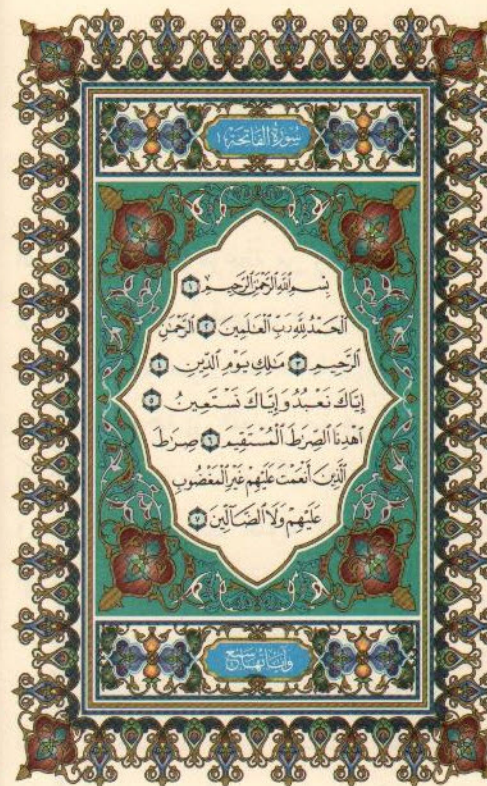 سورة الفاتحة ١
بِسْمِ ٱللَّهِ ٱلرَّحْمَٰنِ ٱلرَّحِيمِ ١
ٱلْحَمْدُ لِلَّهِ رَبِّ ٱلْعَٰلَمِينَ ٢ ٱلرَّحْمَٰنِ
ٱلرَّحِيمِ ٣ مَٰلِكِ يَوْمِ ٱلدِّينِ ٤
إِيَّاكَ نَعْبُدُ وَإِيَّاكَ نَسْتَعِينُ ٥
ٱهْدِنَا ٱلصِّرَٰطَ ٱلْمُسْتَقِيمَ ٦ صِرَٰطَ
ٱلَّذِينَ أَنْعَمْتَ عَلَيْهِمْ غَيْرِ ٱلْمَغْضُوبِ
عَلَيْهِمْ وَلَا ٱلضَّآلِّينَ ٧
وآياتها سبع